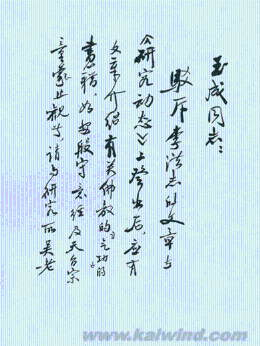 玉成同志：
驳斥李洪志的文章与
《研究动态》上登出后，应有
文章介绍有关佛教的气功的
书籍，如安般守意经及天台宗
童蒙止观等，请与研究所吴老
www.kaiwind.com